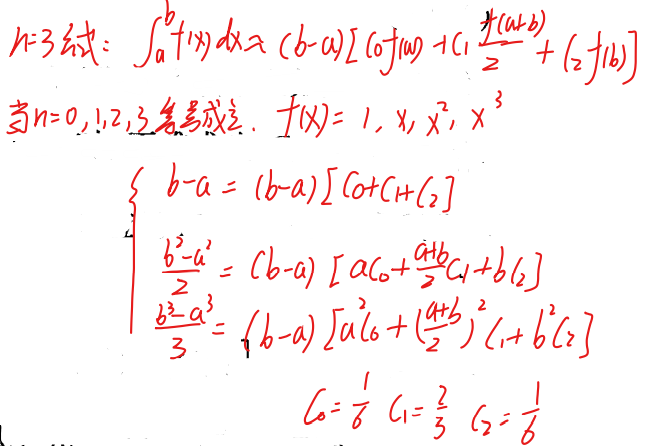 n=3 公式: ∫_a^b f(x) dx ≈ (b-a)[C₀f(a) + C₁ f(a+b)/2 + C₂f(b)]
当n=0,1,2,3 等号成立. f(x)= 1, x, x², x³
b-a = (b-a)[C₀+C₁+C₂]
(b²-a²)/2 = (b-a)[aC₀ + (a+b)/2 C₁ + bC₂]
(b³-a³)/3 = (b-a)[a²C₀ + ((a+b)/2)² C₁ + b²C₂]
C₀ = 1/6 C₁ = 2/3 C₂ = 1/6